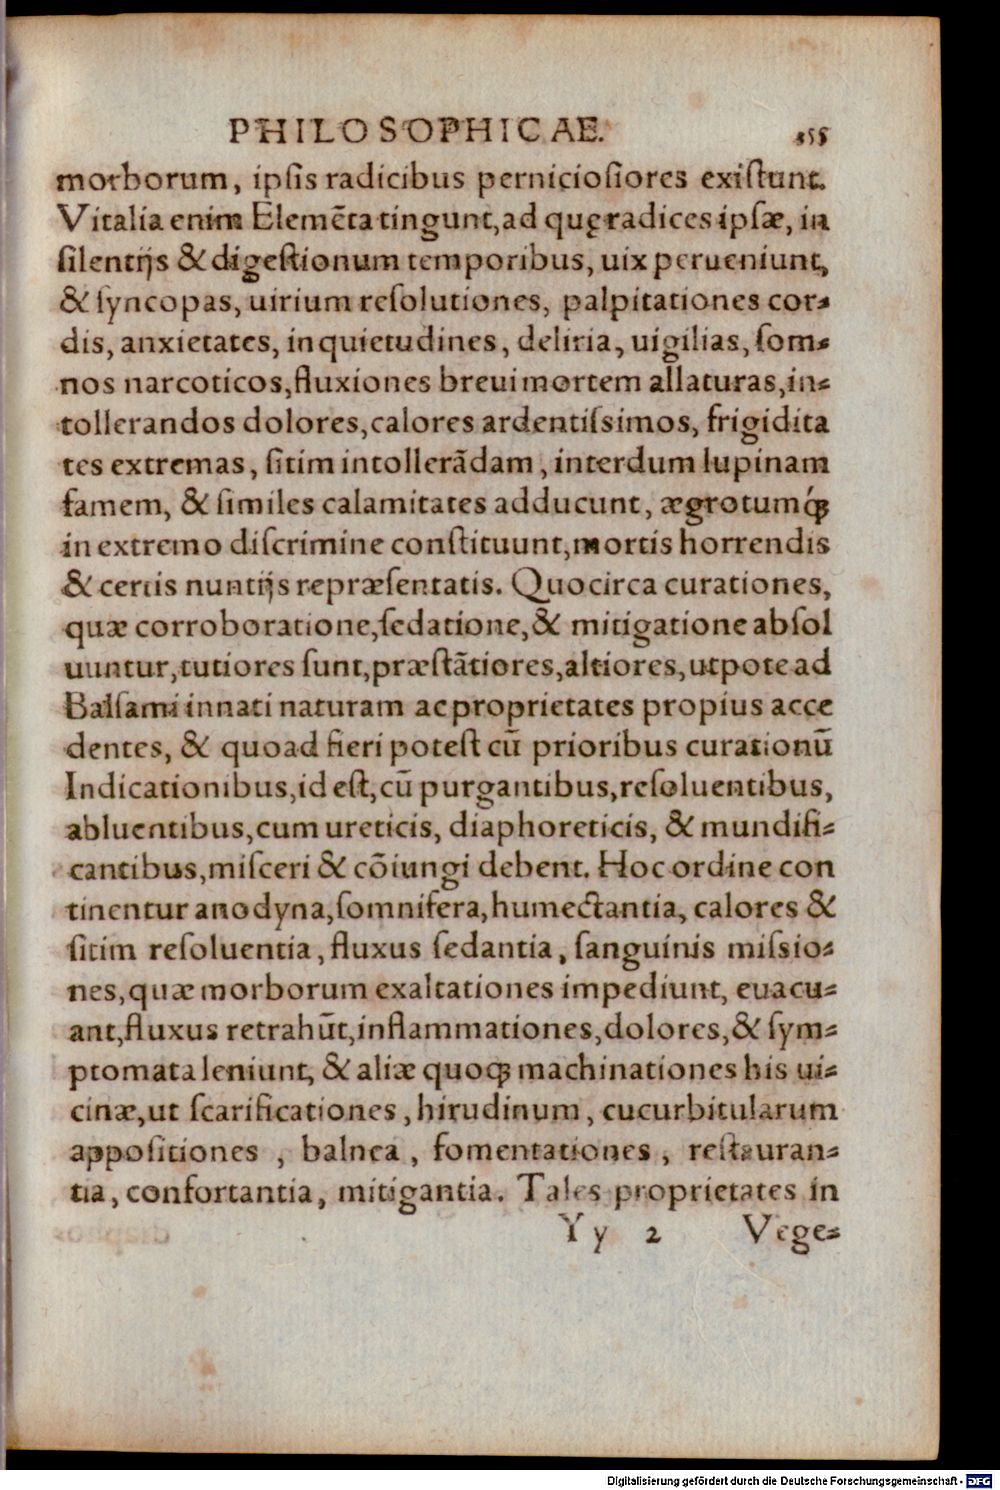 PHILOSOPHICAE. 355
morborum, ipſis radicibus pernicioſiores exiſtunt.
Vitalia enim Elemẽta tingunt, ad quę radices ipſæ, in
ſilentijs & digeſtionum temporibus, uix perueniunt,
& ſyncopas, uirium reſolutiones, palpitationes cor-
dis, anxietates, inquietudines, deliria, uigilias, ſom-
nos narcoticos, fluxiones breui mortem allaturas, in-
tollerandos dolores, calores ardentiſsimos, frigidita
tes extremas, ſitim intollerãdam, interdum lupinam
famem, & ſimiles calamitates adducunt, ægrotumq́ꝫ
in extremo diſcrimine conſtituunt, mortis horrendis
& certis nuntijs repræſentatis. Quocirca curationes,
quæ corroboratione, ſedatione, & mitigatione abſol
uuntur, tutiores ſunt, præſtãtiores, altiores, utpote ad
Balſami innati naturam ac proprietates propius acce
dentes, & quoad fieri poteſt cũ prioribus curationũ
Indicationibus, id eſt, cũ purgantibus, reſoluentibus,
abluentibus, cum ureticis, diaphoreticis, & mundifi-
cantibus, miſceri & cõiungi debent. Hoc ordine con
tinentur anodyna, ſomnifera, humectantia, calores &
ſitim reſoluentia, fluxus ſedantia, ſanguinis miſsio-
nes, quæ morborum exaltationes impediunt, euacu-
ant, fluxus retrahũt, inflammationes, dolores, & ſym-
ptomata leniunt, & aliæ quoqꝫ machinationes his ui-
cinæ, ut ſcarificationes, hirudinum, cucurbitularum
appoſitiones, balnea, fomentationes, reſtauran-
tia, confortantia, mitigantia. Tales proprietates in
Yy 2 Vege-
Digitalisierung gefördert durch die Deutsche Forschungsgemeinschaft - DFG